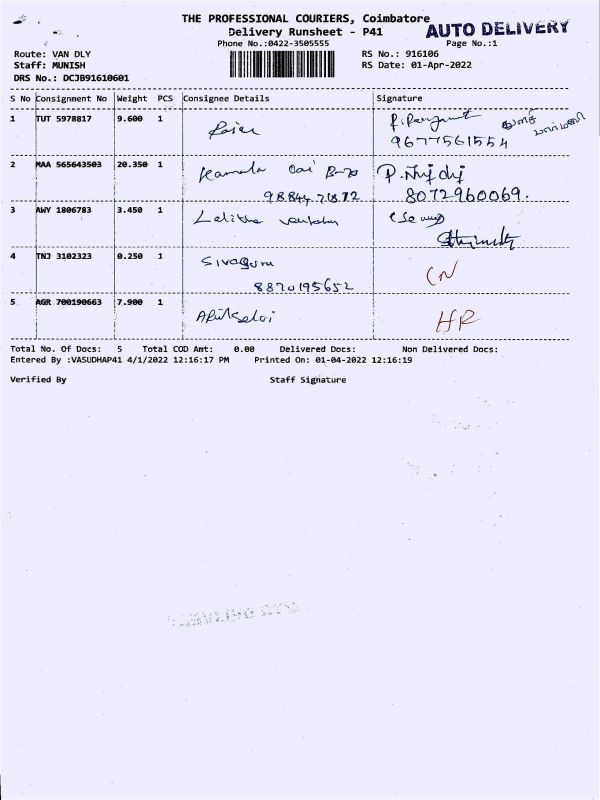 THE PROFESSIONAL COURIERS, Coimbatore
AUTO DELIVERY
Delivery Runsheet - P41
Phone No.:0422-3505555 Page No.:1
Route: VAN DLY RS No.: 916106
Staff: MUNISH RS Date: 01-Apr-2022
DRS No.: DCJB91610601
S No Consignment No Weight PCS Consignee Details Signature
1 TUT 5978817 9.600 1
9677561554
2 MAA 565643503 20.350 1 Kamala
8072960069.
3 AWY 1806783 3.450 1 Lalitha
4 TNJ 3102323 0.250 1 CN
8870195652
5 AGR 700190663 7.900 1 HR
Total No. Of Docs: 5 Total COD Amt: 0.00 Delivered Docs: Non Delivered Docs:
Entered By :VASUDHAP41 4/1/2022 12:16:17 PM Printed On: 01-04-2022 12:16:19
Verified By Staff Signature